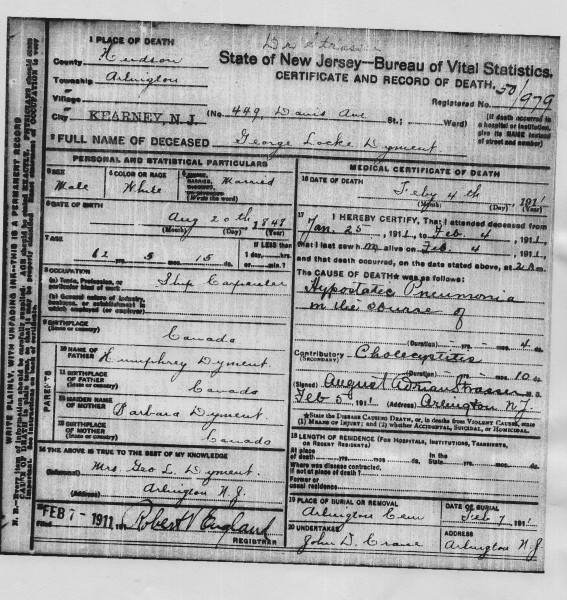 Dr Strasser
1 PLACE OF DEATH
County Hudson
Township Arlington
Village
City KEARNEY, N.J.
State of New Jersey—Bureau of Vital Statistics.
CERTIFICATE AND RECORD OF DEATH.
50/1979
Registered No.
(No. 449, Davis Ave St.; Ward)
(If death occurred in a hospital or institution, give its NAME instead of street and number)
2 FULL NAME OF DECEASED George Locke Dyment
PERSONAL AND STATISTICAL PARTICULARS
3 SEX Male
4 COLOR OR RACE White
Married
6 DATE OF BIRTH
Aug 20th, 1848
(Month) (Day) (Year)
7 AGE
62 5 15
If LESS than
1 day, hrs.
or min.?
8 OCCUPATION
(a) Trade, Profession, or
Ship Carpenter
(b) General nature of industry,
which employed (or employer)
9 BIRTHPLACE
(State or country)
Canada
PARENTS
10 NAME OF FATHER Humphrey Dyment
11 BIRTHPLACE OF FATHER
(State or country)
Canada
12 MAIDEN NAME OF MOTHER Barbara Dyment
13 BIRTHPLACE OF MOTHER
(State or country)
Canada
14 THE ABOVE IS TRUE TO THE BEST OF MY KNOWLEDGE
(Informant) Mrs. Geo L. Dyment
(Address) Arlington N.J.
15 Filed FEB 7 - 1911, 191 Robert V England
REGISTRAR
MEDICAL CERTIFICATE OF DEATH
16 DATE OF DEATH
Feby 4th 1911
(Month) (Day) (Year)
17 I HEREBY CERTIFY, That I attended deceased from
Jan. 25, 1911, to Feb 4, 1911,
that I last saw him alive on Feb 4, 1911,
and that death occurred, on the date stated above, at
The CAUSE OF DEATH★ was as follows:
Hypostatic Pneumonia
in the course of
(Duration) yrs. mos. 4 ds.
Contributory Cholecystitis
(SECONDARY)
(Duration) yrs. mos. 10 ds.
(Signed) August Adrian Strasser M.D.
Feb 5, 1911 (Address) Arlington N.J.
★State the DISEASE CAUSING DEATH, or, in deaths from VIOLENT CAUSES, state
(1) MEANS OF INJURY; and (2) whether ACCIDENTAL, SUICIDAL, or HOMICIDAL.
18 LENGTH OF RESIDENCE (FOR HOSPITALS, INSTITUTIONS, TRANSIENTS,
OR RECENT RESIDENTS)
At place
of death yrs. mos. ds. In the
State yrs. mos. ds.
Where was disease contracted,
if not at place of death?
Former or
usual residence
19 PLACE OF BURIAL OR REMOVAL
Arlington Cem
DATE OF BURIAL
Feb 7, 1911
20 UNDERTAKER
John D. Crane
ADDRESS
Arlington N.J
WRITE PLAINLY, WITH UNFADING INK—THIS IS A PERMANENT RECORD